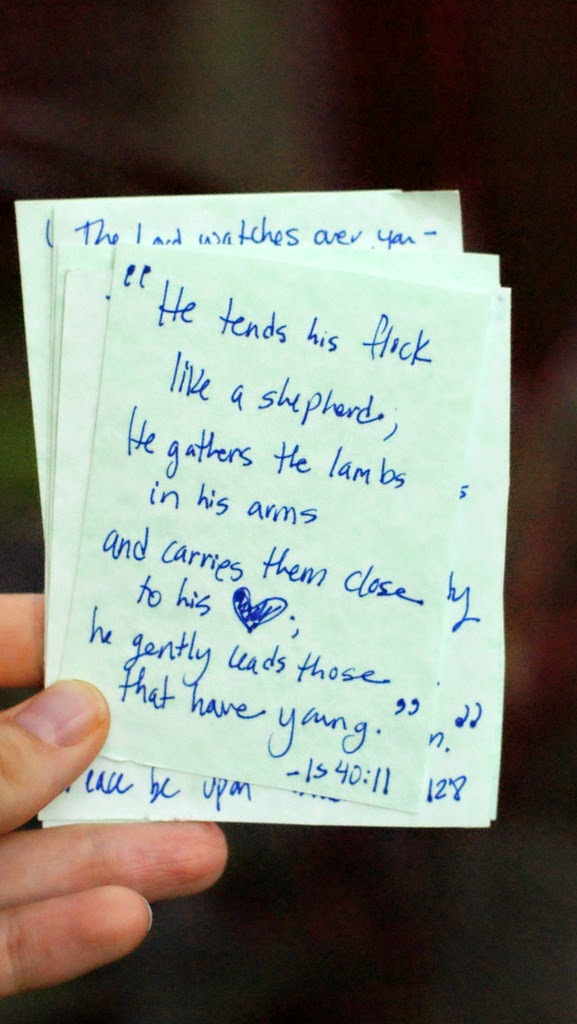 The Lord watches over you-
"He tends his flock
like a shepherd;
He gathers the lambs
in his arms
and carries them close
to his ♥;
he gently leads those
that have young."
-Is 40:11
s
by
n."
be upon
128